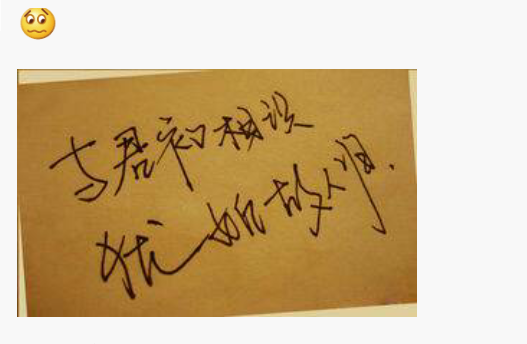 与君初相识
犹如故人归.